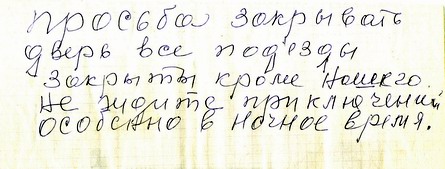 просьба закрывать
дверь все подъезды
закрыты кроме нашего.
не ищите приключений
особено в ночное время.